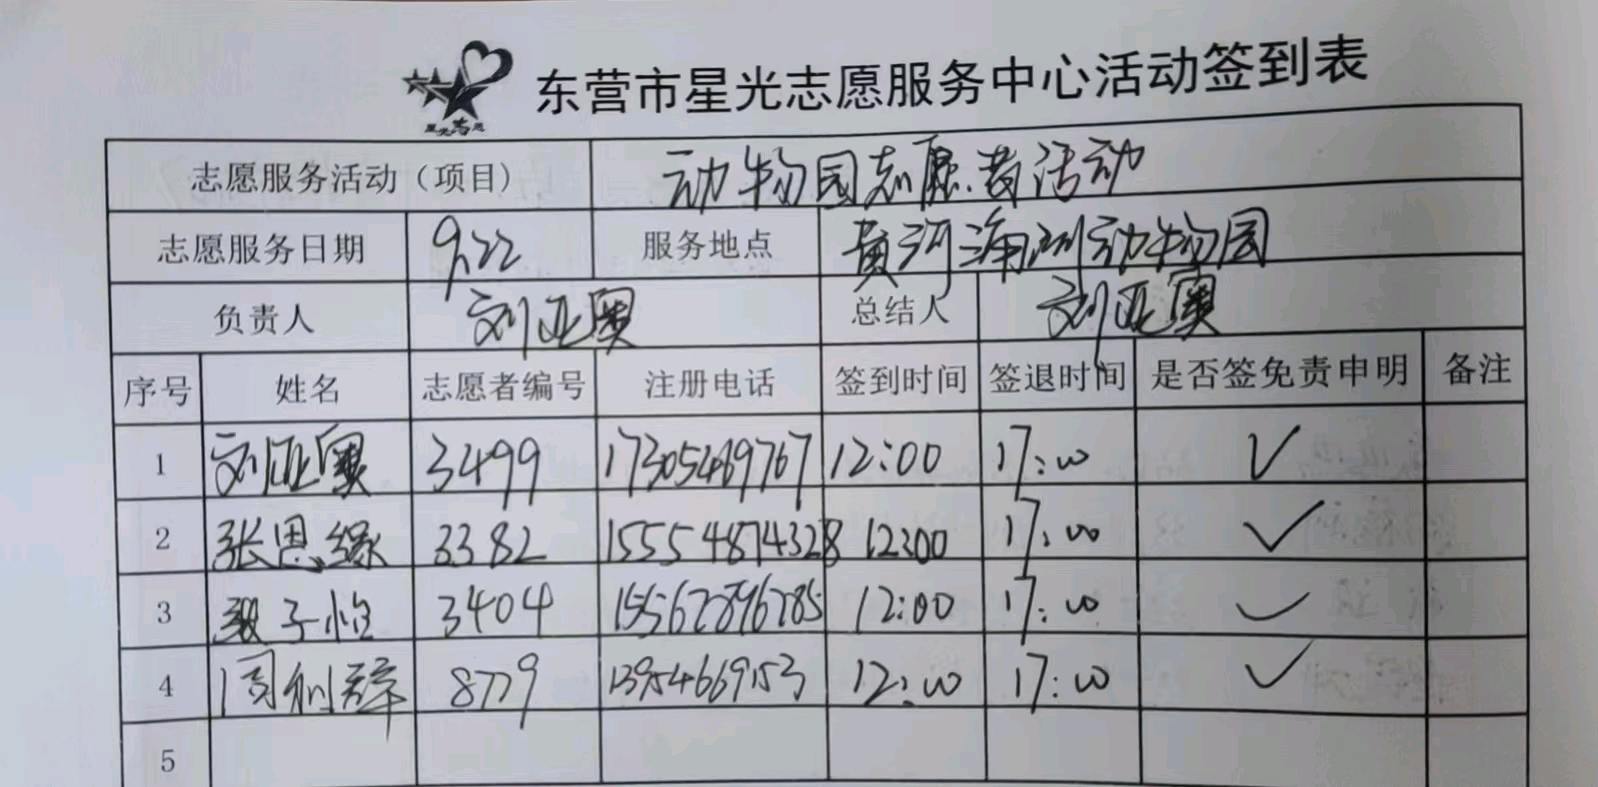 星光志愿
东营市星光志愿服务中心活动签到表
志愿服务活动（项目） 动物园志愿者活动
志愿服务日期 9.22 服务地点 黄河海洲动物园
负责人 刘亚奥 总结人 刘亚奥
序号 姓名 志愿者编号 注册电话 签到时间 签退时间 是否签免责申明 备注
1 刘亚奥 3499 17305469767 12:00 17:00 ✓
2 张思缘 3382 15554874328 12:00 17:00 ✓
3 子怡 3404 15562896285 12:00 17:00 ✓
4 周利群 8779 13954669153 12:00 17:00 ✓
5